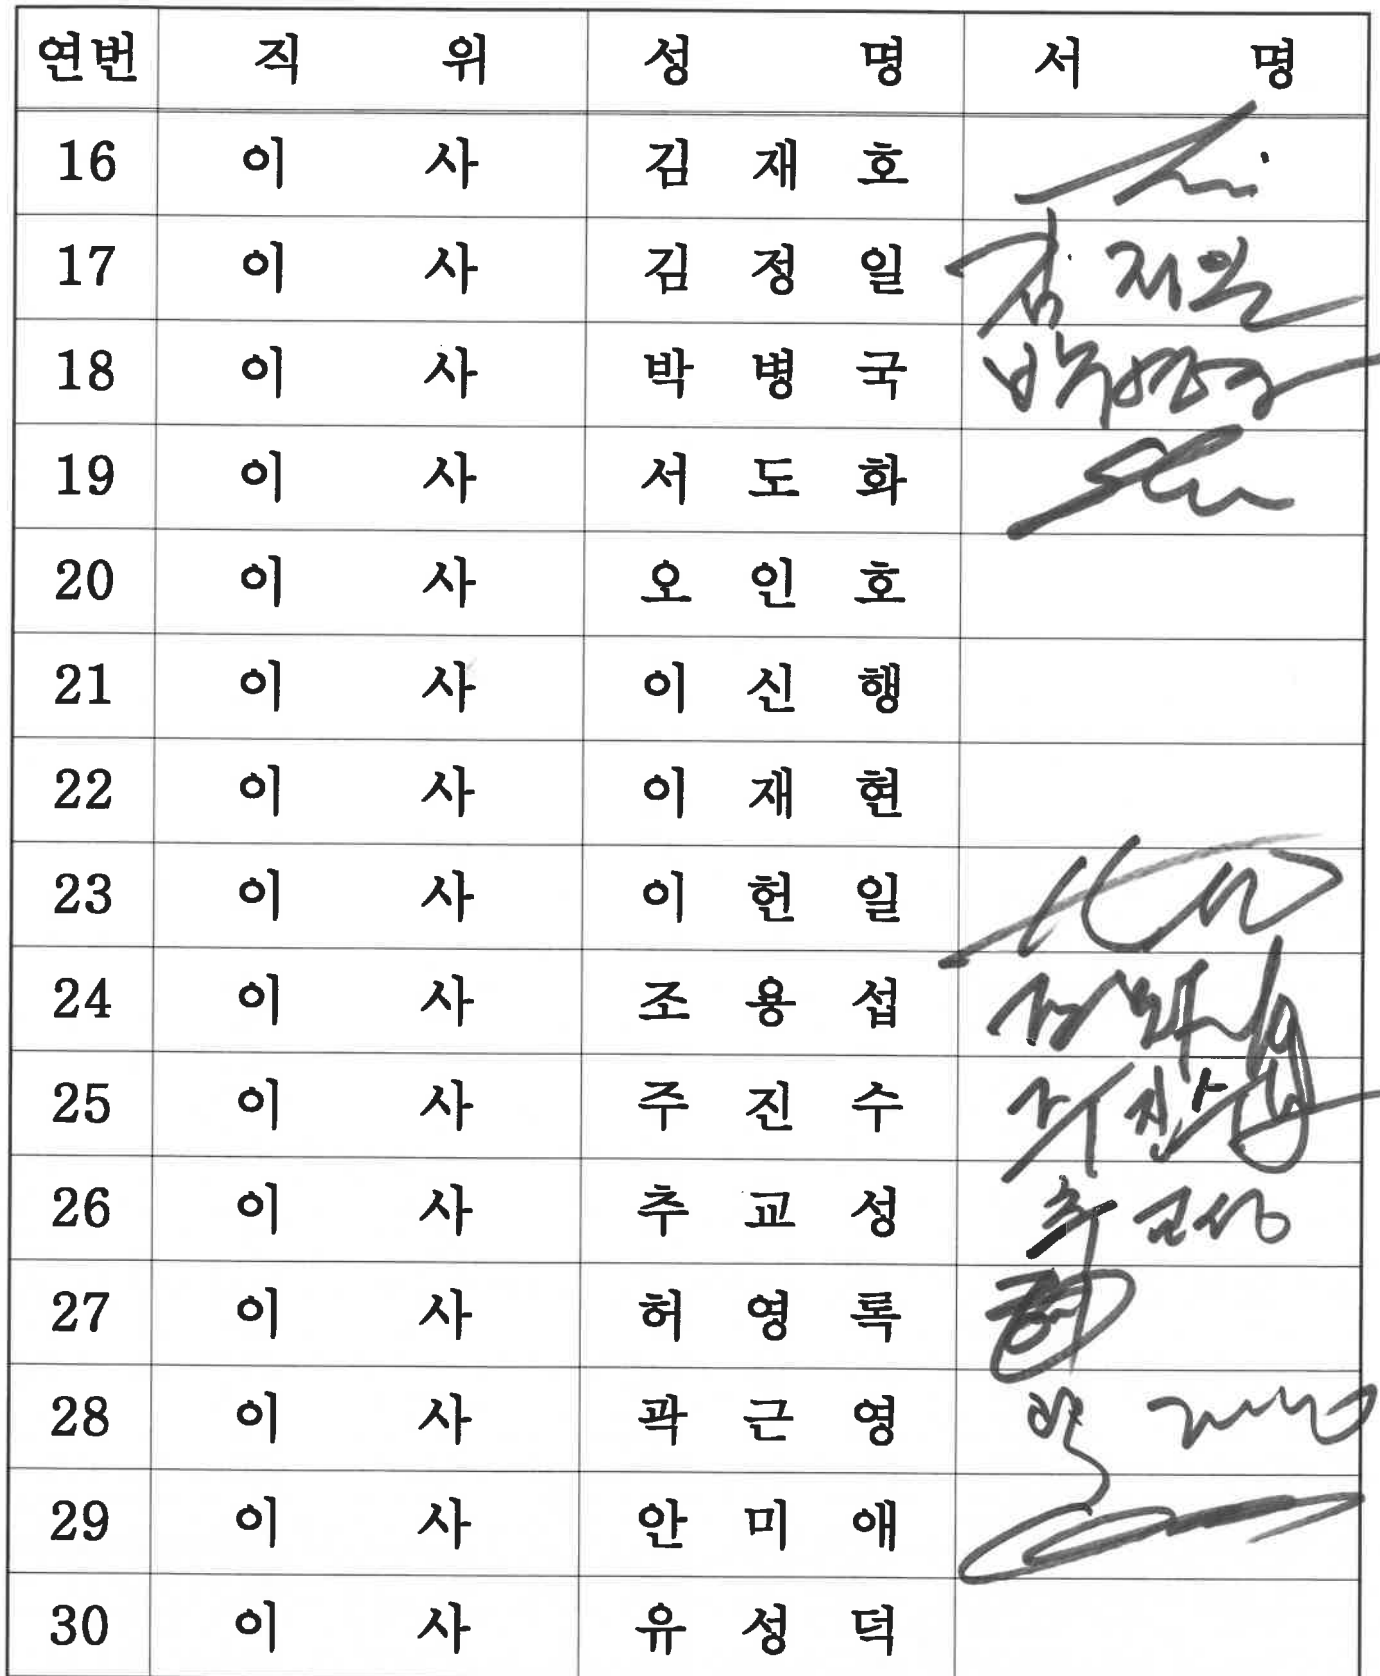 연번 직 위 성 명 서 명
16 이 사 김 재 호
17 이 사 김 정 일
18 이 사 박 병 국
19 이 사 서 도 화
20 이 사 오 인 호
21 이 사 이 신 행
22 이 사 이 재 현
23 이 사 이 헌 일
24 이 사 조 용 섭
25 이 사 주 진 수 주진수
26 이 사 추 교 성 추교성
27 이 사 허 영 록
28 이 사 곽 근 영
29 이 사 안 미 애
30 이 사 유 성 덕